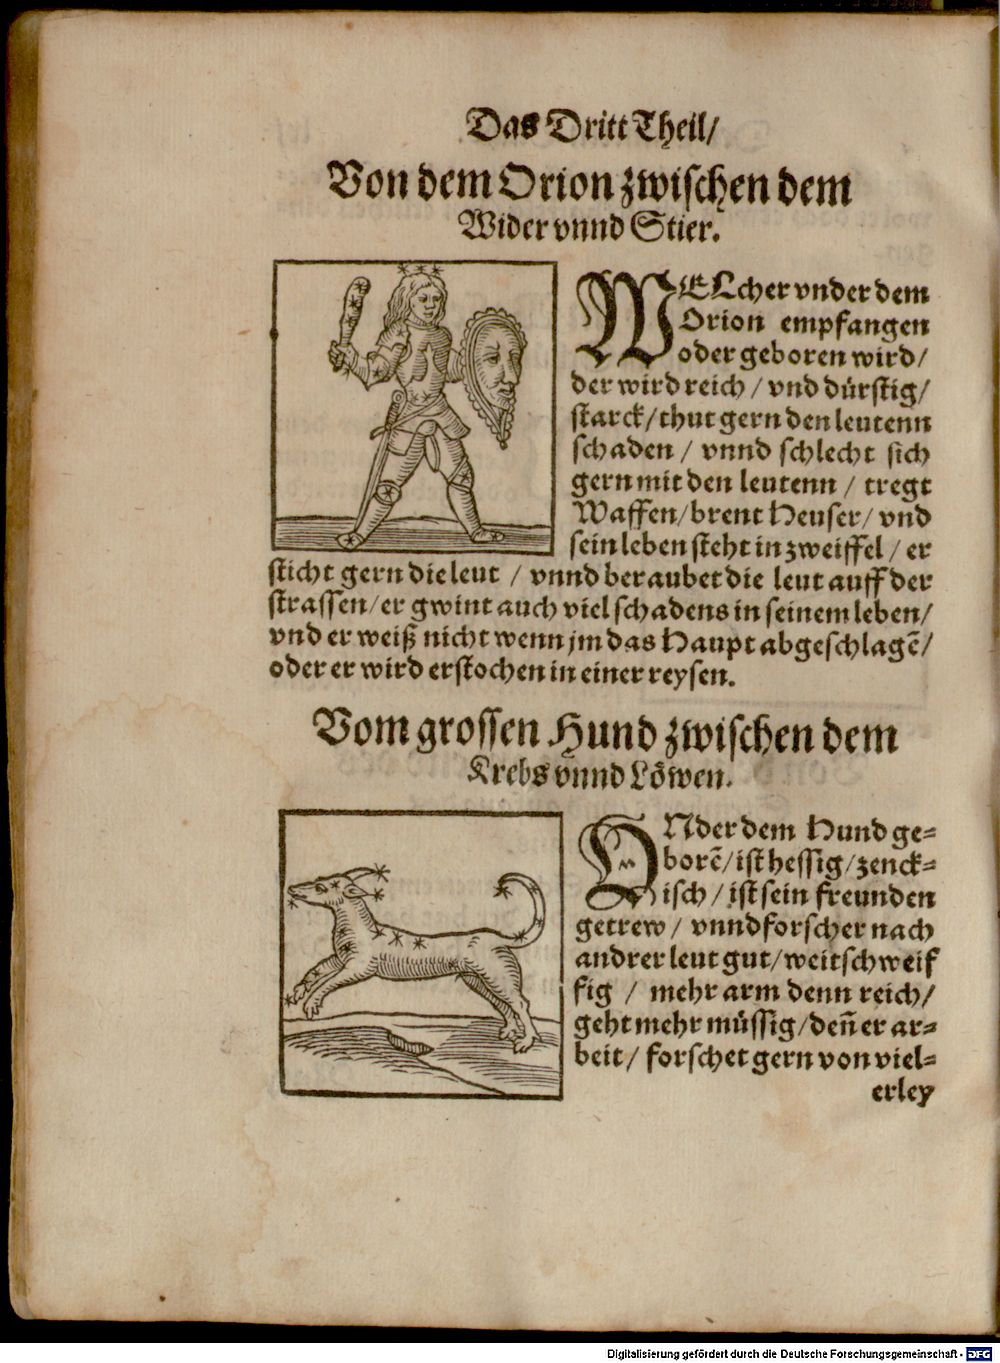 Das Dritt Theil/
Von dem Orion zwischen dem
Wider vnnd Stier.
WELcher vnder dem
Orion empfangen
oder geboren wird/
der wird reich / vnd dürstig/
starck/thut gern den leutenn
schaden / vnnd schlecht sich
gern mit den leutenn / tregt
Waffen/brent Heuser/ vnd
sein leben steht in zweiffel / er
sticht gern die leut / vnnd beraubet die leut auff der
strassen/er gwint auch viel schadens in seinem leben/
vnd er weiß nicht wenn jm das Haupt abgeschlagẽ/
oder er wird erstochen in einer reysen.
Vom grossen Hund zwischen dem
Krebs vnnd Löwen.
VNder dem Hund ge=
borẽ/ist hessig/zenck=
isch / ist sein freunden
getrew / vnnd forscher nach
andrer leut gut/weitschweif
fig / mehr arm denn reich/
geht mehr müssig/deñ er ar=
beit/ forschet gern von viel=
erley
Digitalisierung gefördert durch die Deutsche Forschungsgemeinschaft - DFG